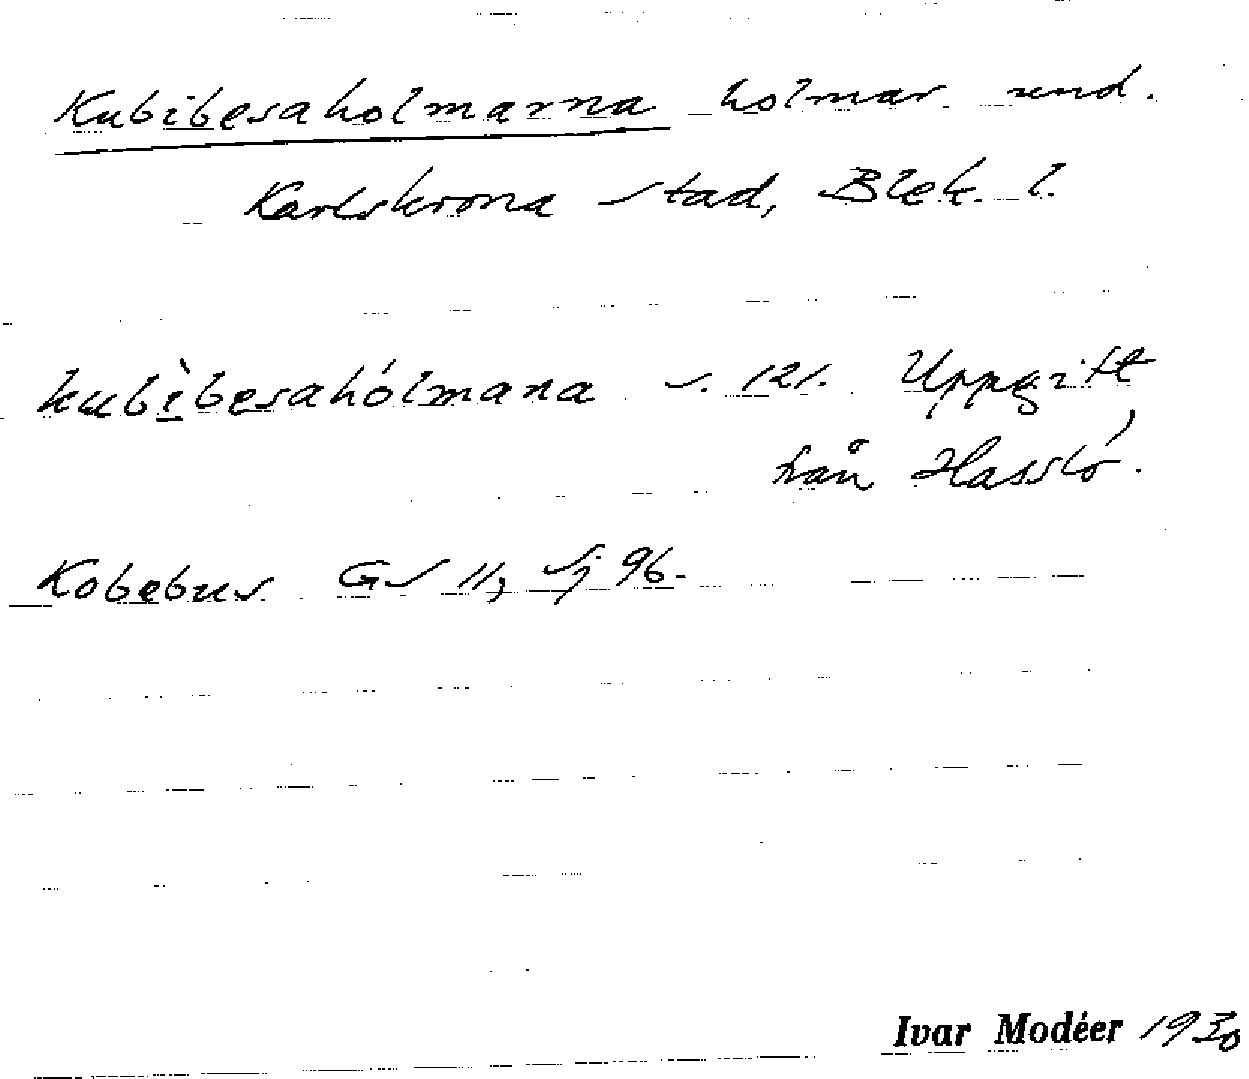 Kubibesaholmarna holmar und.
Karlskrona stad, Blek. l.
kubìbesahólmana s. 121. Uppgift
från Hasslö.
Kobebus GS 11, sj 96.
Ivar Modéer 1930